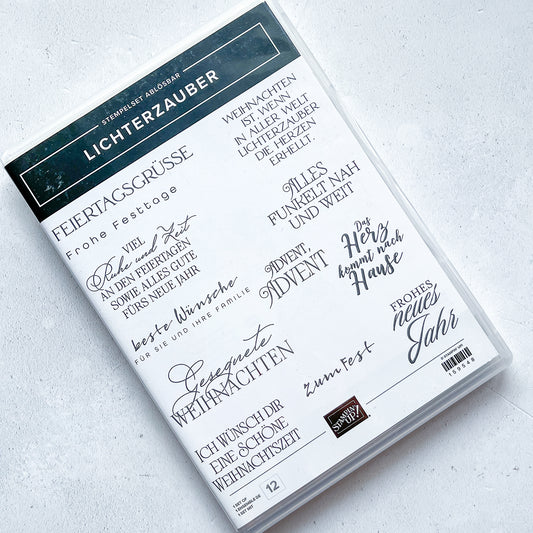 STEMPELSET ABLÖSBAR
LICHTERZAUBER
FEIERTAGSGRÜSSE
Frohe Festtage
WEIHNACHTEN
IST, WENN
IN ALLER WELT
LICHTERZAUBER
DIE HERZEN
ERHELLT.
VIEL
Ruhe und Zeit
AN DEN FEIERTAGEN
SOWIE ALLES GUTE
FÜRS NEUE JAHR
ALLES
FUNKELT NAH
UND WEIT
beste Wünsche
FÜR SIE UND IHRE FAMILIE
ADVENT,
ADVENT
Das
Herz
kommt nach
Hause
Gesegnete
WEIHNACHTEN
Zum Fest
FROHES
neues
Jahr
ICH WÜNSCH DIR
EINE SCHÖNE
WEIHNACHTSZEIT
STAMPIN'
UP!
159548
1 SET OF
1 ENSEMBLE DE
1 SET MIT
12